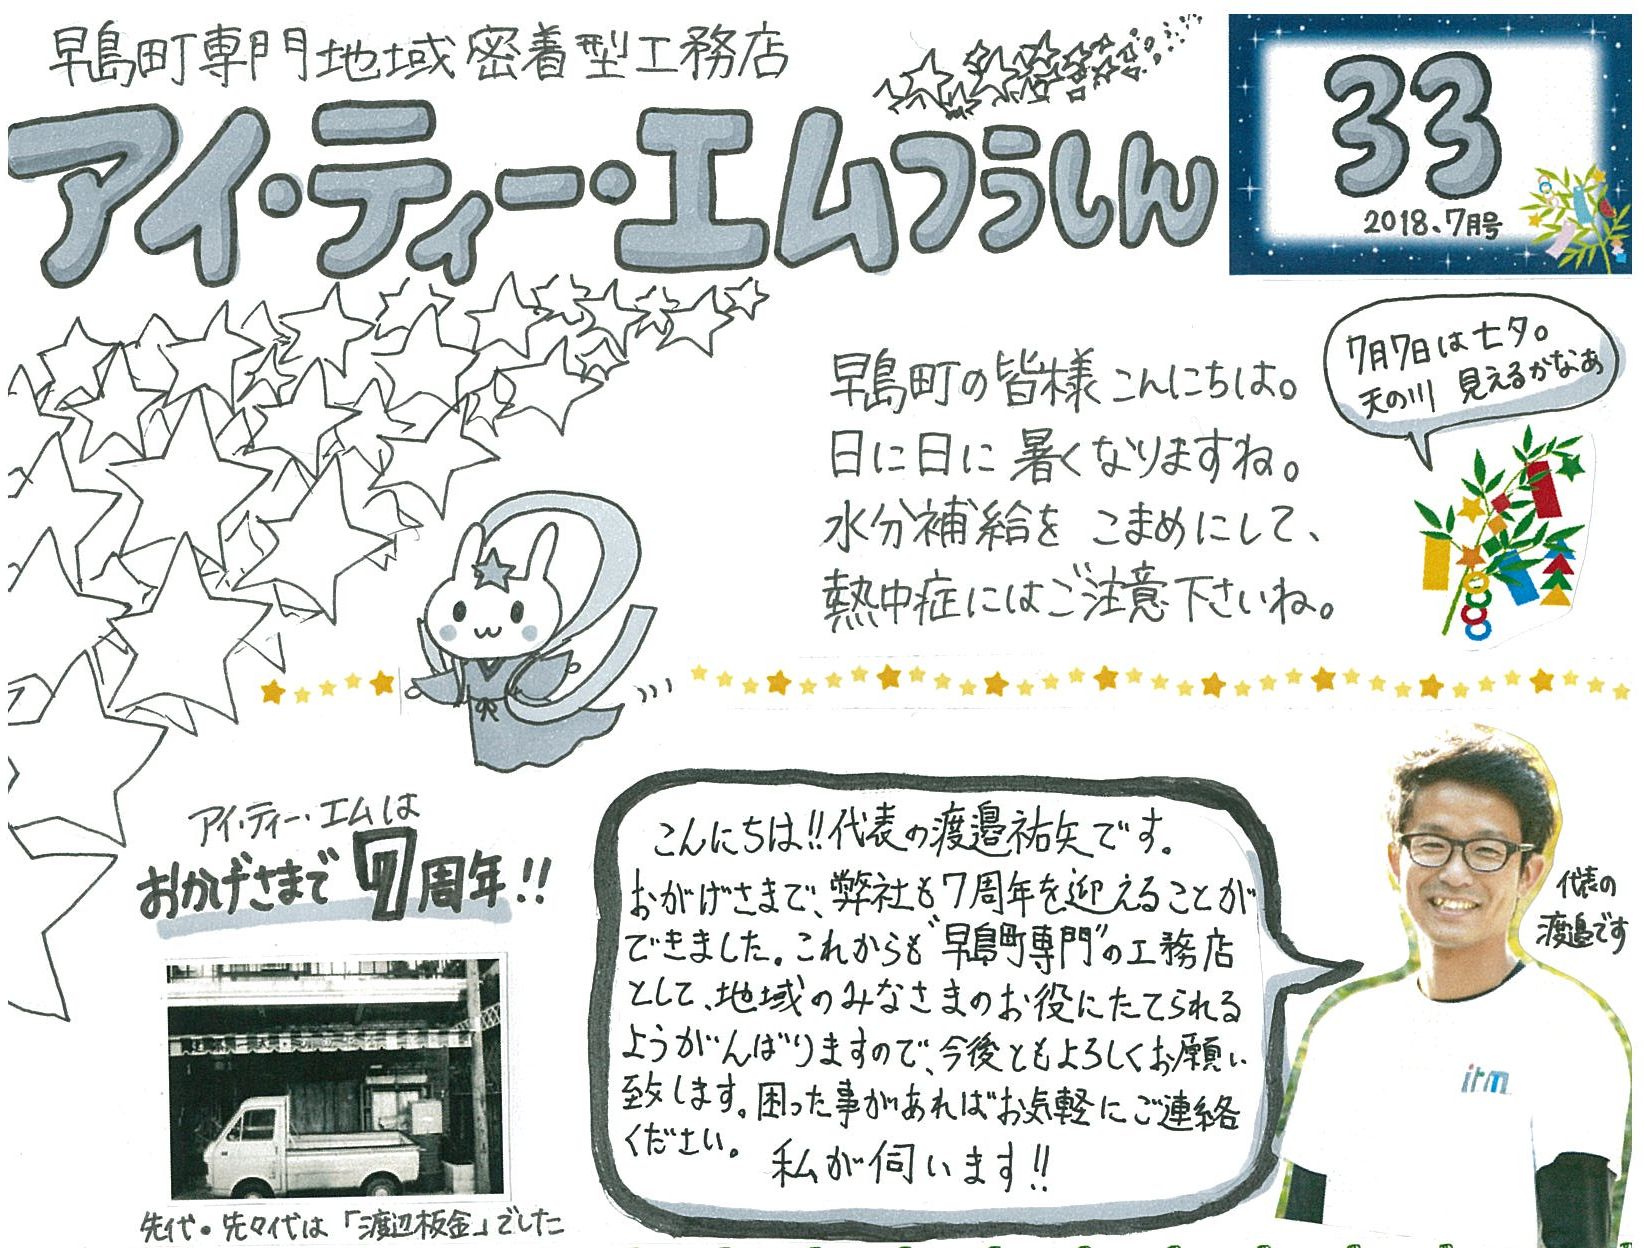 早島町専門地域密着型工務店
アイ・ティー・エムつうしん
33
2018.7月号
7月7日は七夕。
天の川 見えるかなぁ
早島町の皆様こんにちは。
日に日に暑くなりますね。
水分補給を こまめにして、
熱中症にはご注意下さいね。
アイ・ティー・エムは
おかげさまで7周年!!
こんにちは!!代表の渡邉祐矢です。
おがげさまで、弊社も7周年を迎えることが
できました。これからも"早島町専門"の工務店
として、地域のみなさまのお役にたてられる
ようがんばりますので、今後ともよろしくお願い
致します。困った事があればお気軽にご連絡
ください。
私が伺います!!
代表の
渡邉です
itm
先代・先々代は「渡辺板金」でした